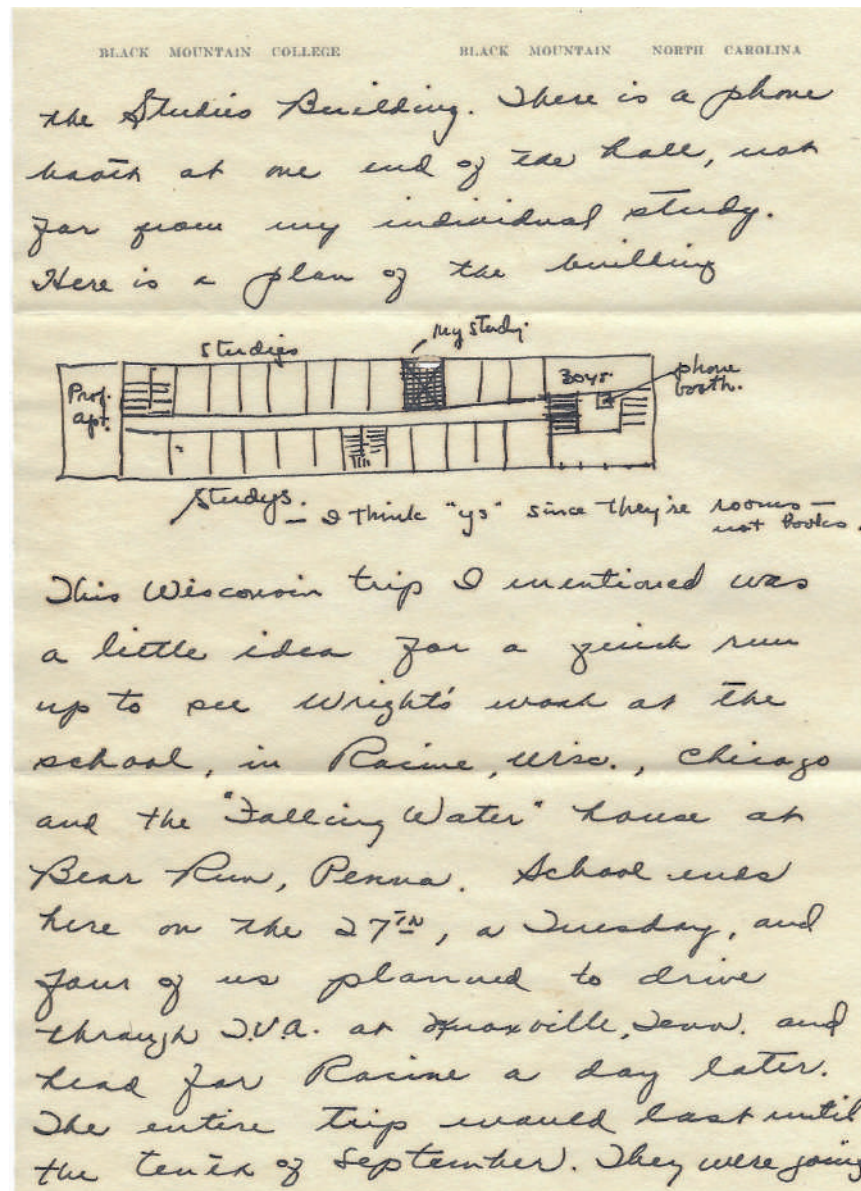 BLACK MOUNTAIN COLLEGE BLACK MOUNTAIN NORTH CAROLINA
the Studies Building. There is a phone
booth at one end of the hall, not
far from my individual study.
Here is a plan of the building
my study.
Studies
Prof. apt.
Boys.
phone booth.
Studys — I think "ys" since they're rooms —
not books.
This Wisconsin trip I mentioned was
a little idea for a quick run
up to see Wright's work at the
school, in Racine, Wisc., Chicago
and the "Falling Water" house at
Bear Run, Penna. School ends
here on the 27TH, a Tuesday, and
four of us planned to drive
through T.V.A. at Knoxville, Tenn. and
head for Racine a day later.
The entire trip would last until
the tenth of September. They were going